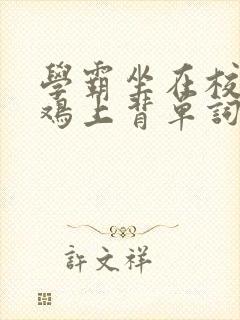 學霸坐在校
鸡上背單詞
許文祥